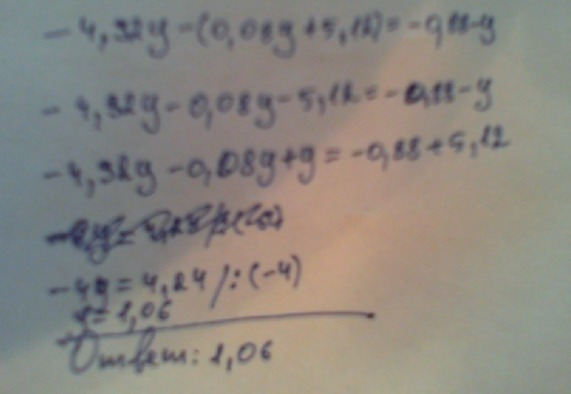 -4,92y-(0,08y+5,12)=-0,88-y
-4,92y-0,08y-5,12=-0,88-y
-4,92y-0,08y+y=-0,88+5,12
-4y=4,24/:(-4)
y=1,06
Ответ: 1,06